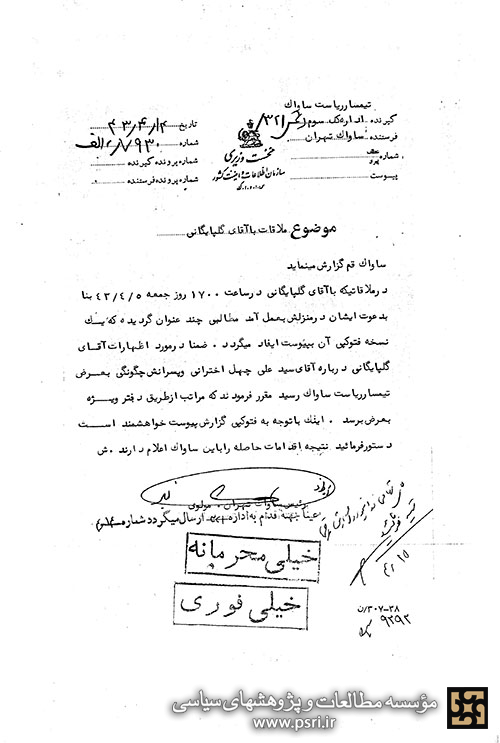 تیمسار ریاست ساواک
گیرنده: اداره یک سوم ۳۲۱
فرستنده: ساواک تهران
شماره
پیوست
نخست وزیری
سازمان اطلاعات و امنیت کشور
تاریخ ۴۳/۴/۱۴
شماره ۹۳۰ الف
شماره پرونده گیرنده
شماره پرونده فرستنده
موضوع ملاقات با آقای گلپایگانی
ساواک قم گزارش مینماید
در ملاقاتیکه با آقای گلپایگانی در ساعت ۱۷۰۰ روز جمعه ۴۳/۴/۵ بنا
بدعوت ایشان در منزلش بعمل آمد مطالبی چند عنوان گردیده که یک
نسخه فتوکپی آن بپیوست ایفاد میگردد . ضمنا در مورد اظهارات آقای
گلپایگانی درباره آقای سید علی چهل اخترانی وپسرانش چگونگی بعرض
تیمسار ریاست ساواک رسید مقرر فرمودند که مراتب از طریق دفتر ویژه
بعرض برسد . اینک با توجه به فتوکپی گزارش پیوست خواهشمند است
دستور فرمائید نتیجه اقدامات حاصله را باین ساواک اعلام دارند . ش
رئیس ساواک تهران . مولوی
عینا جهت اقدام به اداره ارسال میگردد شماره
خیلی محرمانه
خیلی فوری
۴/۱۵
۳۰۷-۳۸/ن
۹۲۹۲
مؤسسه مطالعات و پژوهشهای سیاسی
www.psri.ir